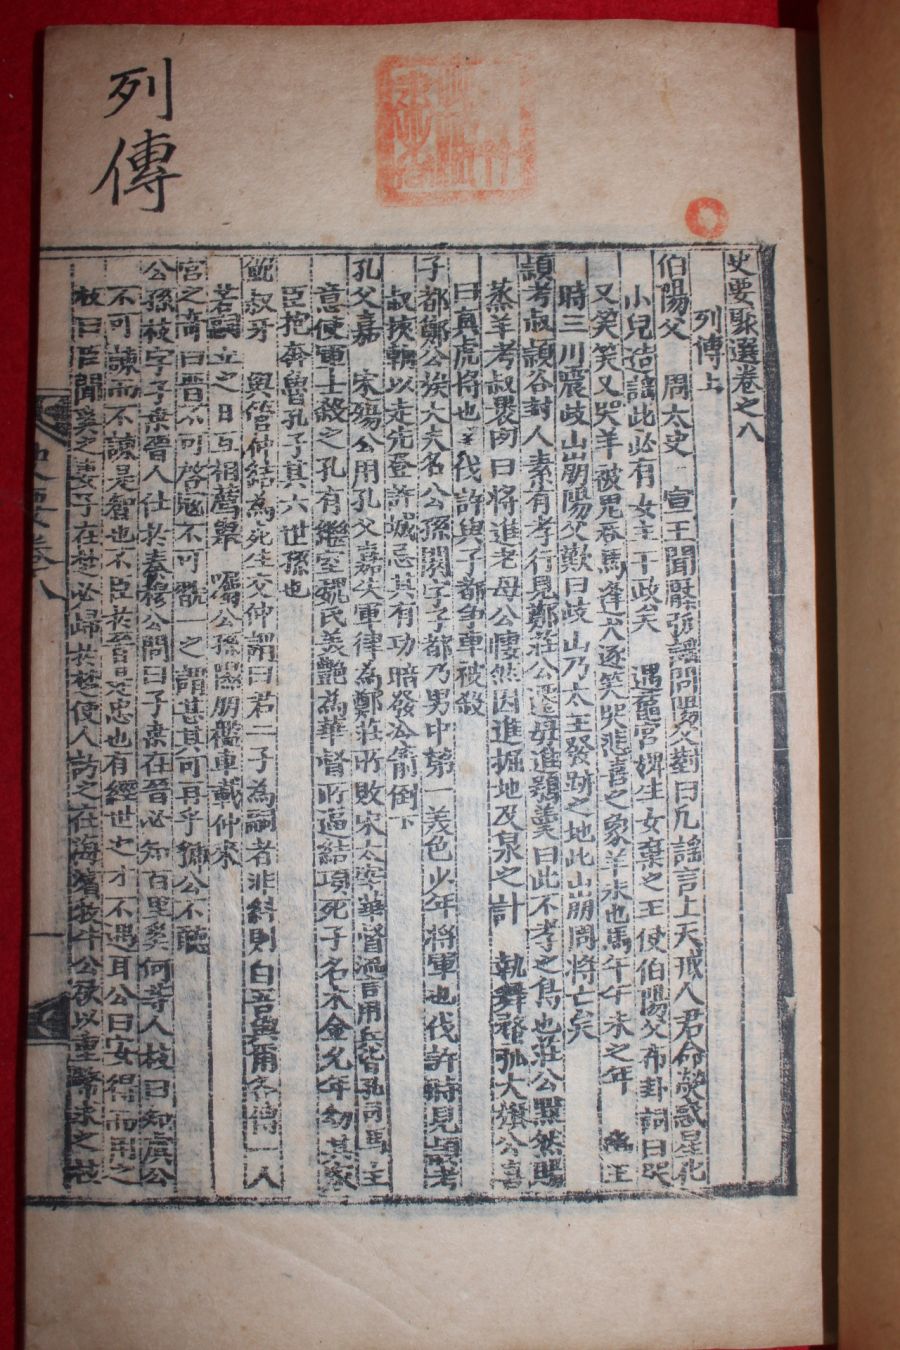 列傳
史要聚選卷之八
列傳上
伯陽父　周太史　宣王聞檿弧謠問陽父對曰凡謠言上天戒人君命熒惑星化
小兒造謠此必有女主干政矣　遇舊宮婢生女棄之王使伯陽父布卦詞曰哭
又笑笑又哭羊被鬼吞馬逢犬逐笑哭悲喜之象羊未也馬午午未之年　幽王
時三川震歧山崩陽父歎曰歧山乃太王發跡之地此山崩周將亡矣
頴考叔頴谷封人素有孝行見鄭莊公遷母進鴞羹曰此不孝之鳥也莊公默然賜
蒸羊考叔裹肉曰將進老母公悽然因進掘地及泉之計　執舞螯弧大旗公喜
曰眞虎將也　伐許與子都爭車被殺
子都鄭公族大夫名公孫閼字子都乃男中第一美色少年將軍也伐許時見頴考
叔挾輈以走先登許城忌其有功暗發冷箭倒下
孔父嘉　宋殤公用孔父嘉失軍律為鄭莊所敗宋太宰華督流言用兵皆孔司馬主
意使軍士殺之孔有繼室魏氏美艶為華督所逼結項死子名木金父年幼其家
臣抱奔魯孔子其六世孫也
鮑叔牙　與管仲結為死生交仲謂曰若一子為嗣者非糾則白吾與爾各傅一人
若嗣立之日互相薦擧　囑公孫隰朋檻車載仲來
宮之奇曰晋不可啓寇不可翫一之謂甚其可再乎虢公不聽
公孫枝字子桑晉人仕於秦穆公問曰子桑在晉必知百里奚何等人枝曰知虞公
不可諫而不諫是智也不臣於晉是忠也有經世之才不遇耳公曰安得而用之
枝曰臣聞奚之妻子在楚必歸於楚使人訪之在海濱牧牛公欲以重幣求之枝
史要卷八
一